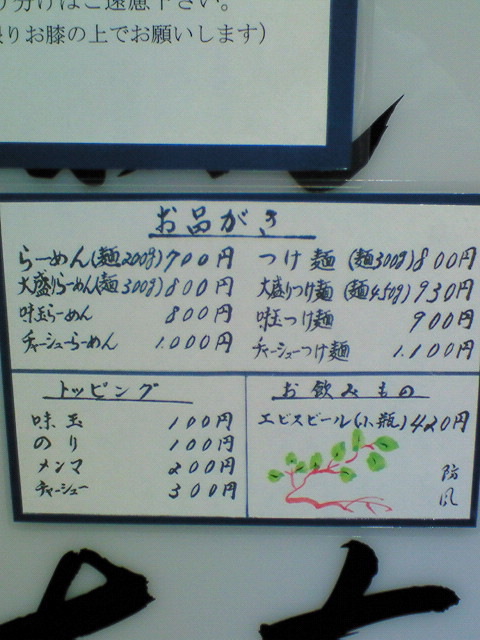 り分けはご遠慮下さい。
限りお膝の上でお願いします)
お品がき
らーめん(麺200g)700円
大盛りらーめん(麺300g)800円
味玉らーめん 800円
チャーシューらーめん 1.000円
つけ麺(麺300g)800円
大盛りつけ麺(麺450g)930円
味玉つけ麺 900円
チャーシューつけ麺 1.100円
トッピング
味玉 100円
のり 100円
メンマ 200円
チャーシュー 300円
お飲みもの
エビスビール(小瓶)420円
防風